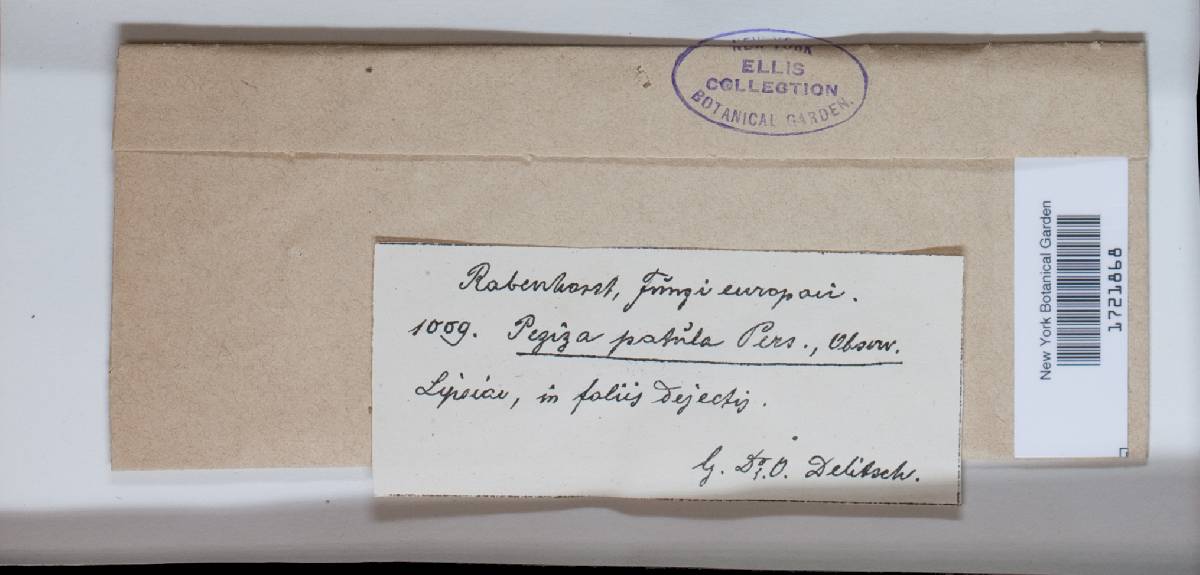 NEW YORK
ELLIS
COLLECTION
BOTANICAL GARDEN.
Rabenhorst, Fŭngi europaei.
1009. Peziza patŭla Pers., Observ.
Lipsiae, in foliis dejectis.
G. Dr. O. Delitsch.
New York Botanical Garden
1721868